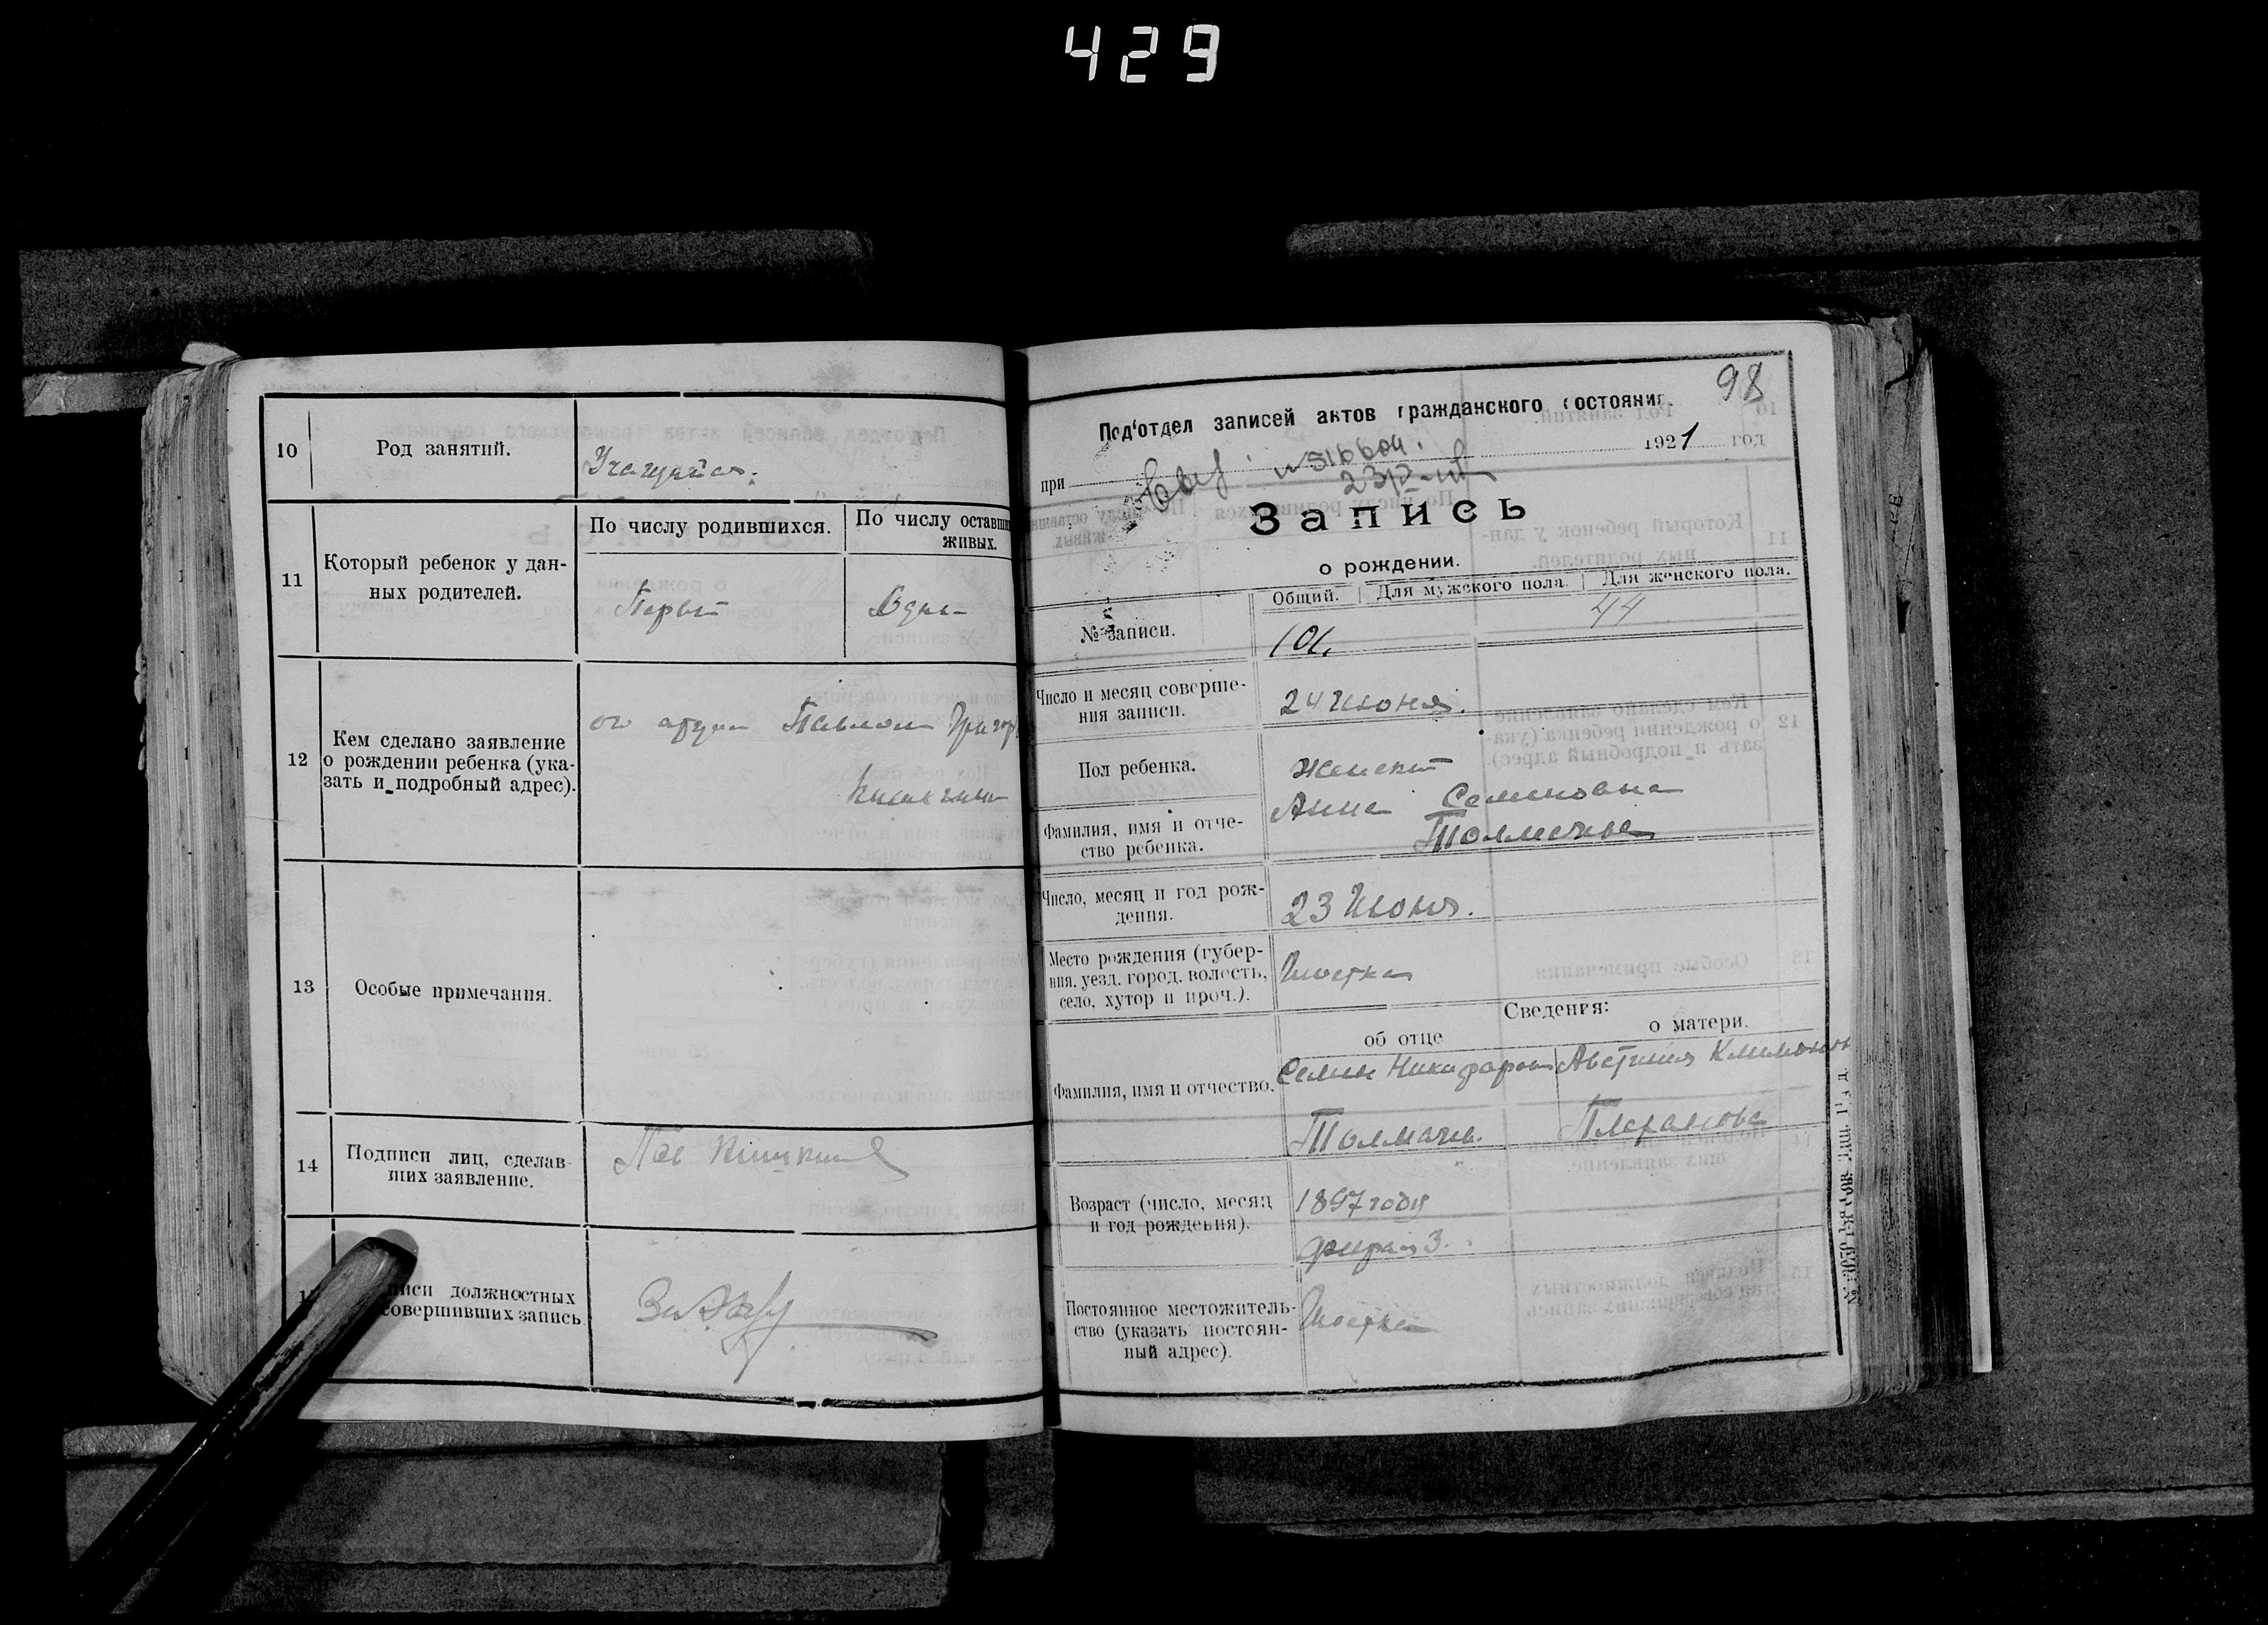 429
10
Род занятий.
Учащийся.
11
Который ребенок у дан-
ных родителей.
По числу родившихся.
По числу оставши
живых.
Первый
Один
12
Кем сделано заявление
о рождении ребенка (ука-
зать и подробный адрес).
Павлом Григор
13
Особые примечания.
14
Подписи лиц, сделав-
ших заявление.
Пав
писи должностных
совершивших запись.
98
Под'отдел записей актов гражданского состояния.
при
1921 год
Запись
о рождении.
№ записи.
Общий.
Для мужского пола.
Для женского пола.
101.
44
Число и месяц соверше-
ния записи.
24 Июня.
Пол ребенка.
Женский
Фамилия, имя и отче-
ство ребенка.
Анна Семеновна
Толмачева
Число, месяц и год рож-
дения.
23 Июня.
Место рождения (губер-
ния, уезд, город, волость,
село, хутор и проч.).
Шостка
Сведения:
об отце
о матери.
Фамилия, имя и отчество.
Семен Никифоров
Толмачев.
Климовна
Плеханова
Возраст (число, месяц
и год рождения).
1897 года
Февраля 3.
Постоянное местожитель-
ство (указать постоян-
ный адрес).
Шостка